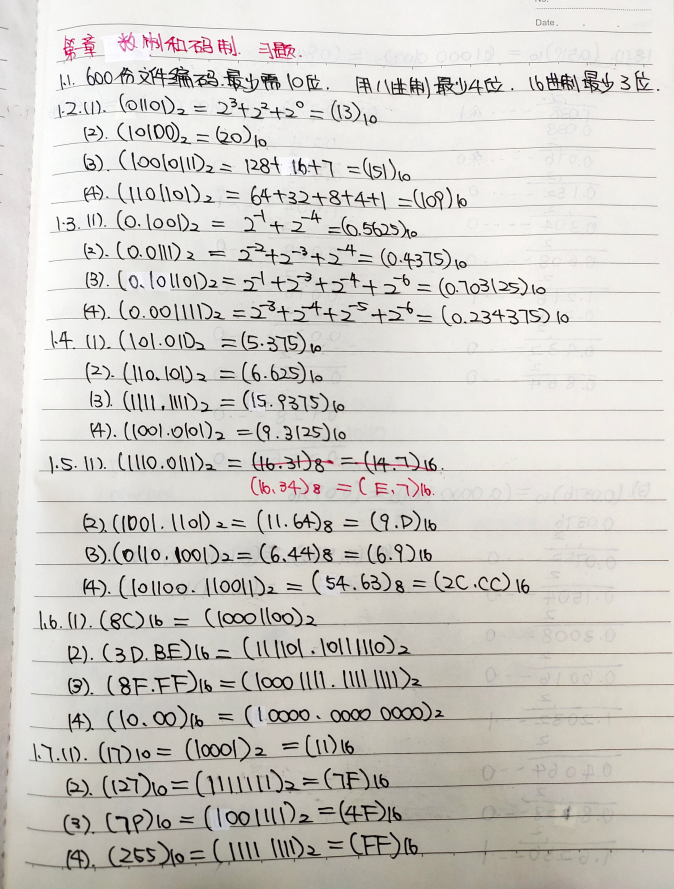 No.
Date.
第章 数制和码制. 习题.
1.1. 600份文件编码.最少需10位. 用八进制最少4位. 16进制最少3位.
1.2.(1). (01101)₂ = 2³+2²+2⁰ = (13)₁₀
(2). (10100)₂ = (20)₁₀
(3). (10010111)₂ = 128+16+7 = (151)₁₀
(4). (1101101)₂ = 64+32+8+4+1 = (109)₁₀
1.3. (1). (0.1001)₂ = 2⁻¹ + 2⁻⁴ = (0.5625)₁₀
(2). (0.0111)₂ = 2⁻²+2⁻³+2⁻⁴ = (0.4375)₁₀
(3). (0.101101)₂ = 2⁻¹+2⁻³+2⁻⁴+2⁻⁶ = (0.703125)₁₀
(4). (0.001111)₂ = 2⁻³+2⁻⁴+2⁻⁵+2⁻⁶ = (0.234375)₁₀
1.4. (1). (101.011)₂ = (5.375)₁₀
(2). (110.101)₂ = (6.625)₁₀
(3). (1111.1111)₂ = (15.9375)₁₀
(4). (1001.0101)₂ = (9.3125)₁₀
1.5. (1). (1110.0111)₂ = (16.31)₈ = (14.7)₁₆.
(16.34)₈ = (E.7)₁₆.
(2). (1001.1101)₂ = (11.64)₈ = (9.D)₁₆
(3). (0110.1001)₂ = (6.44)₈ = (6.9)₁₆
(4). (101100.110011)₂ = (54.63)₈ = (2C.CC)₁₆
1.6. (1). (8C)₁₆ = (10001100)₂
(2). (3D.BE)₁₆ = (111101.10111110)₂
(3). (8F.FF)₁₆ = (1000 1111.1111 1111)₂
(4). (10.00)₁₆ = (10000.0000 0000)₂
1.7. (1). (17)₁₀ = (10001)₂ = (11)₁₆
(2). (127)₁₀ = (1111111)₂ = (7F)₁₆
(3). (79)₁₀ = (1001111)₂ = (4F)₁₆
(4). (255)₁₀ = (1111 1111)₂ = (FF)₁₆